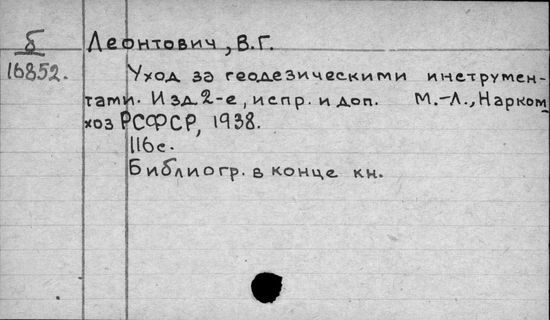 б Леонтович, В.Г.
16852. Уход за геодезическими инструмен-
тами. Изд. 2-е, испр. и доп. М.-Л., Нарком
хоз РСФСР, 1938.
116с.
Библиогр. в конце кн.